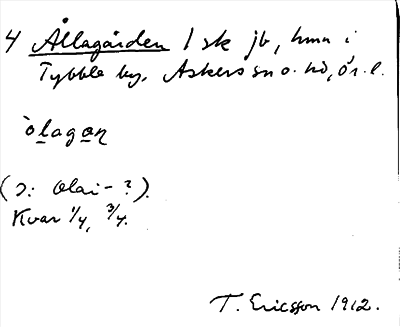 4 Ållagården 1 sk jb, hmn i
Tybble by, Askers sn o. hd, Ör. l.
òlagan
(ɔ: Olai- ?).
Kvar 1/4, 3/4.
T. Ericsson 1912.